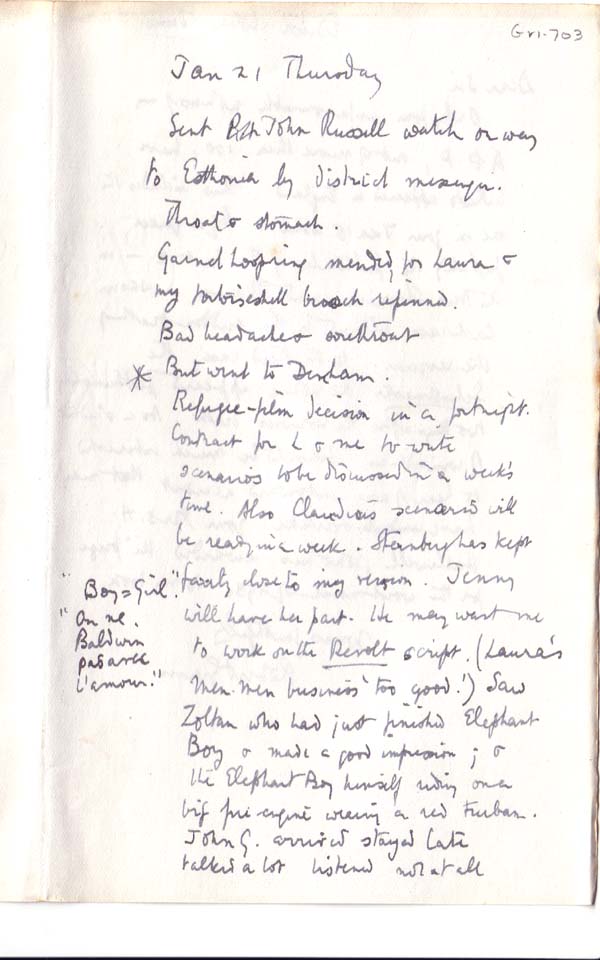 Gr1-703
Jan 21 Thursday
Sent John Russell watch on way
to Esthonia by district messenger.
Throat & stomach.
Garnet hoopring mended, for Laura &
my tortoiseshell brooch repinned.
Bad headache & sorethroat
* But went to Denham.
Refugee-film decision in a fortnight.
Contract for L & me to write
scenarios to be discussed in a week's
time. Also Claudius scenario will
be ready in a week. Sternburg has kept
fairly close to my version. Jenny
will have her part. He may want me
to work on the Revolt script. (Laura's
Men-men business 'too good'.) Saw
Zoltan who had just finished Elephant
Boy & made a good impression; &
the Elephant Boy himself riding on a
big fire-engine wearing a red turban.
John G. arrived stayed late
talked a lot listened not at all
"Boy = Girl".
"On ne
Baldwin
pas avec
l'amour."